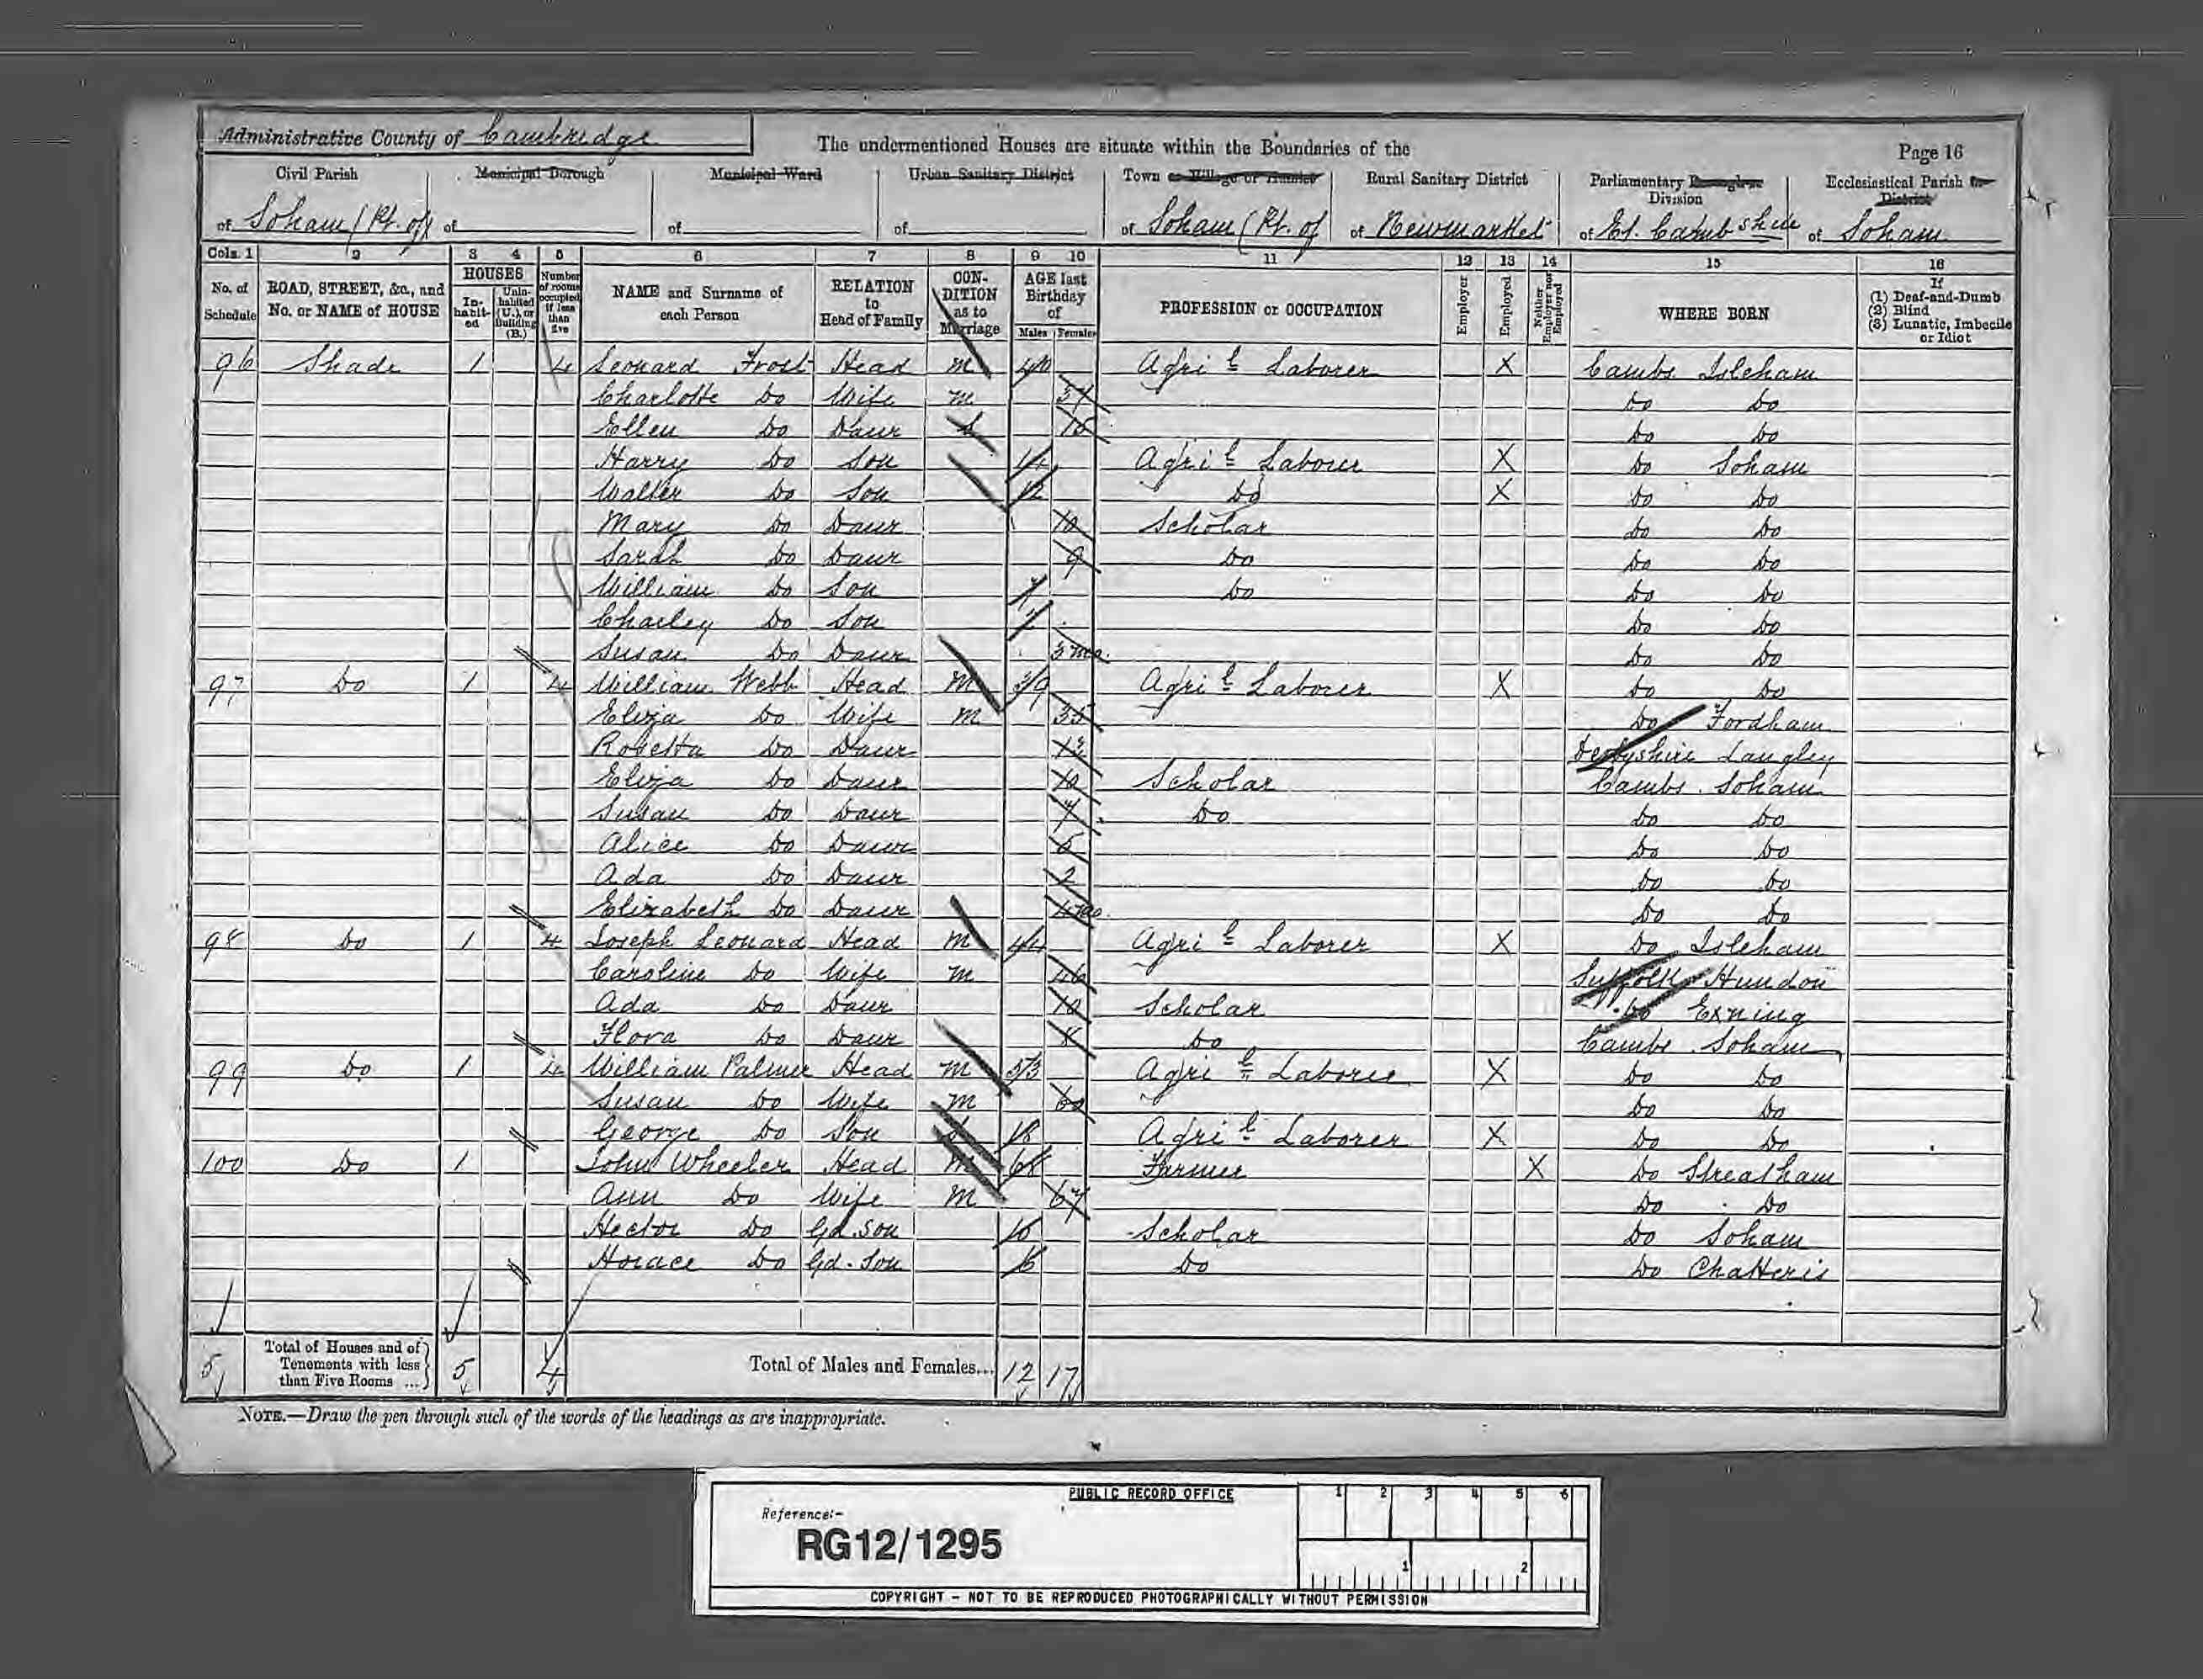 Administrative County of Cambridge
The undermentioned Houses are situate within the Boundaries of the
Page 16
Civil Parish of Soham (Pt. of)
Municipal Borough of
Municipal Ward of
Urban Sanitary District of
Town or Village or Hamlet of Soham (Pt. of
Rural Sanitary District of Newmarket
Parliamentary Borough or Division of Et. Cambshire
Ecclesiastical Parish or District of Soham
Cols. 1 2 3 4 5 6 7 8 9 10 11 12 13 14 15 16
No. of Schedule
ROAD, STREET, &c., and No. or NAME of HOUSE
HOUSES
In-habit-ed
Unin-habited (U.), or Building (B.)
Number of rooms occupied if less than five
NAME and Surname of each Person
RELATION to Head of Family
CON-DITION as to Marriage
AGE last Birthday of
Males Females
PROFESSION or OCCUPATION
Employer
Employed
Neither Employer nor Employed
WHERE BORN
If (1) Deaf-and-Dumb (2) Blind (3) Lunatic, Imbecile or Idiot
96 Shade 1 4 Leonard Frost Head M 40 Agri l Laborer X Cambs Isleham
Charlotte Do Wife M Do Do
Ellen Do Daur S Do Do
Harry Do Son 14 Agri l Laborer X Do Soham
Walter Do Son 12 Do X Do Do
Mary Do Daur 10 Scholar Do Do
Sarah Do Daur 9 Do Do Do
William Do Son 7 Do Do Do
Charley Do Son Do Do
Susan Do Daur 3 mo. Do Do
97 Do 1 4 William Webb Head M 39 Agri l Laborer X Do Do
Eliza Do Wife M 35 Do Fordham
Rosetta Do Daur Derbyshire Langley
Eliza Do Daur 10 Scholar Cambs. Soham
Susan Do Daur 7 Do Do Do
Alice Do Daur Do Do
Ada Do Daur 2 Do Do
Elizabeth Do Daur 4 mo. Do Do
98 Do 1 4 Joseph Leonard Head M 44 Agri l Laborer X Do Isleham
Caroline Do Wife M 46 Suffolk Hundon
Ada Do Daur 10 Scholar Do Exning
Flora Do Daur 8 Do Cambs. Soham
99 Do 1 4 William Palmer Head M 53 Agri l Laborer X Do Do
Susan Do Wife M 60 Do Do
George Do Son S 18 Agri l Laborer X Do Do
100 Do 1 John Wheeler Head M 68 Farmer X Do Streatham
Ann Do Wife M 67 Do Do
Hector Do Gd. Son 10 Scholar Do Soham
Horace Do Gd. Son 6 Do Do Chatteris
5 Total of Houses and of Tenements with less than Five Rooms ... 5 4 Total of Males and Females... 12 17
NOTE.—Draw the pen through such of the words of the headings as are inappropriate.
PUBLIC RECORD OFFICE
1 2 3 4 5 6
Reference:-
RG12/1295
1 2
COPYRIGHT - NOT TO BE REPRODUCED PHOTOGRAPHICALLY WITHOUT PERMISSION